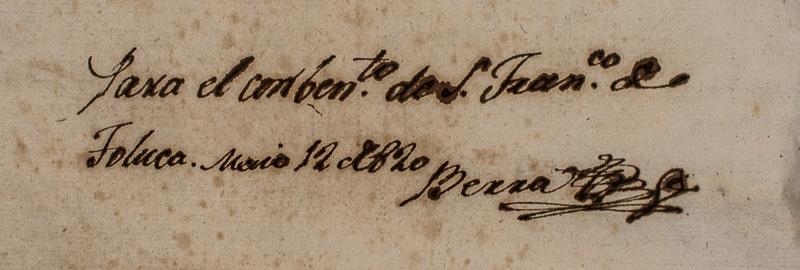 Para el conben.to de S. Fran.co de
Toluca. Maio 12 de 820
Berra